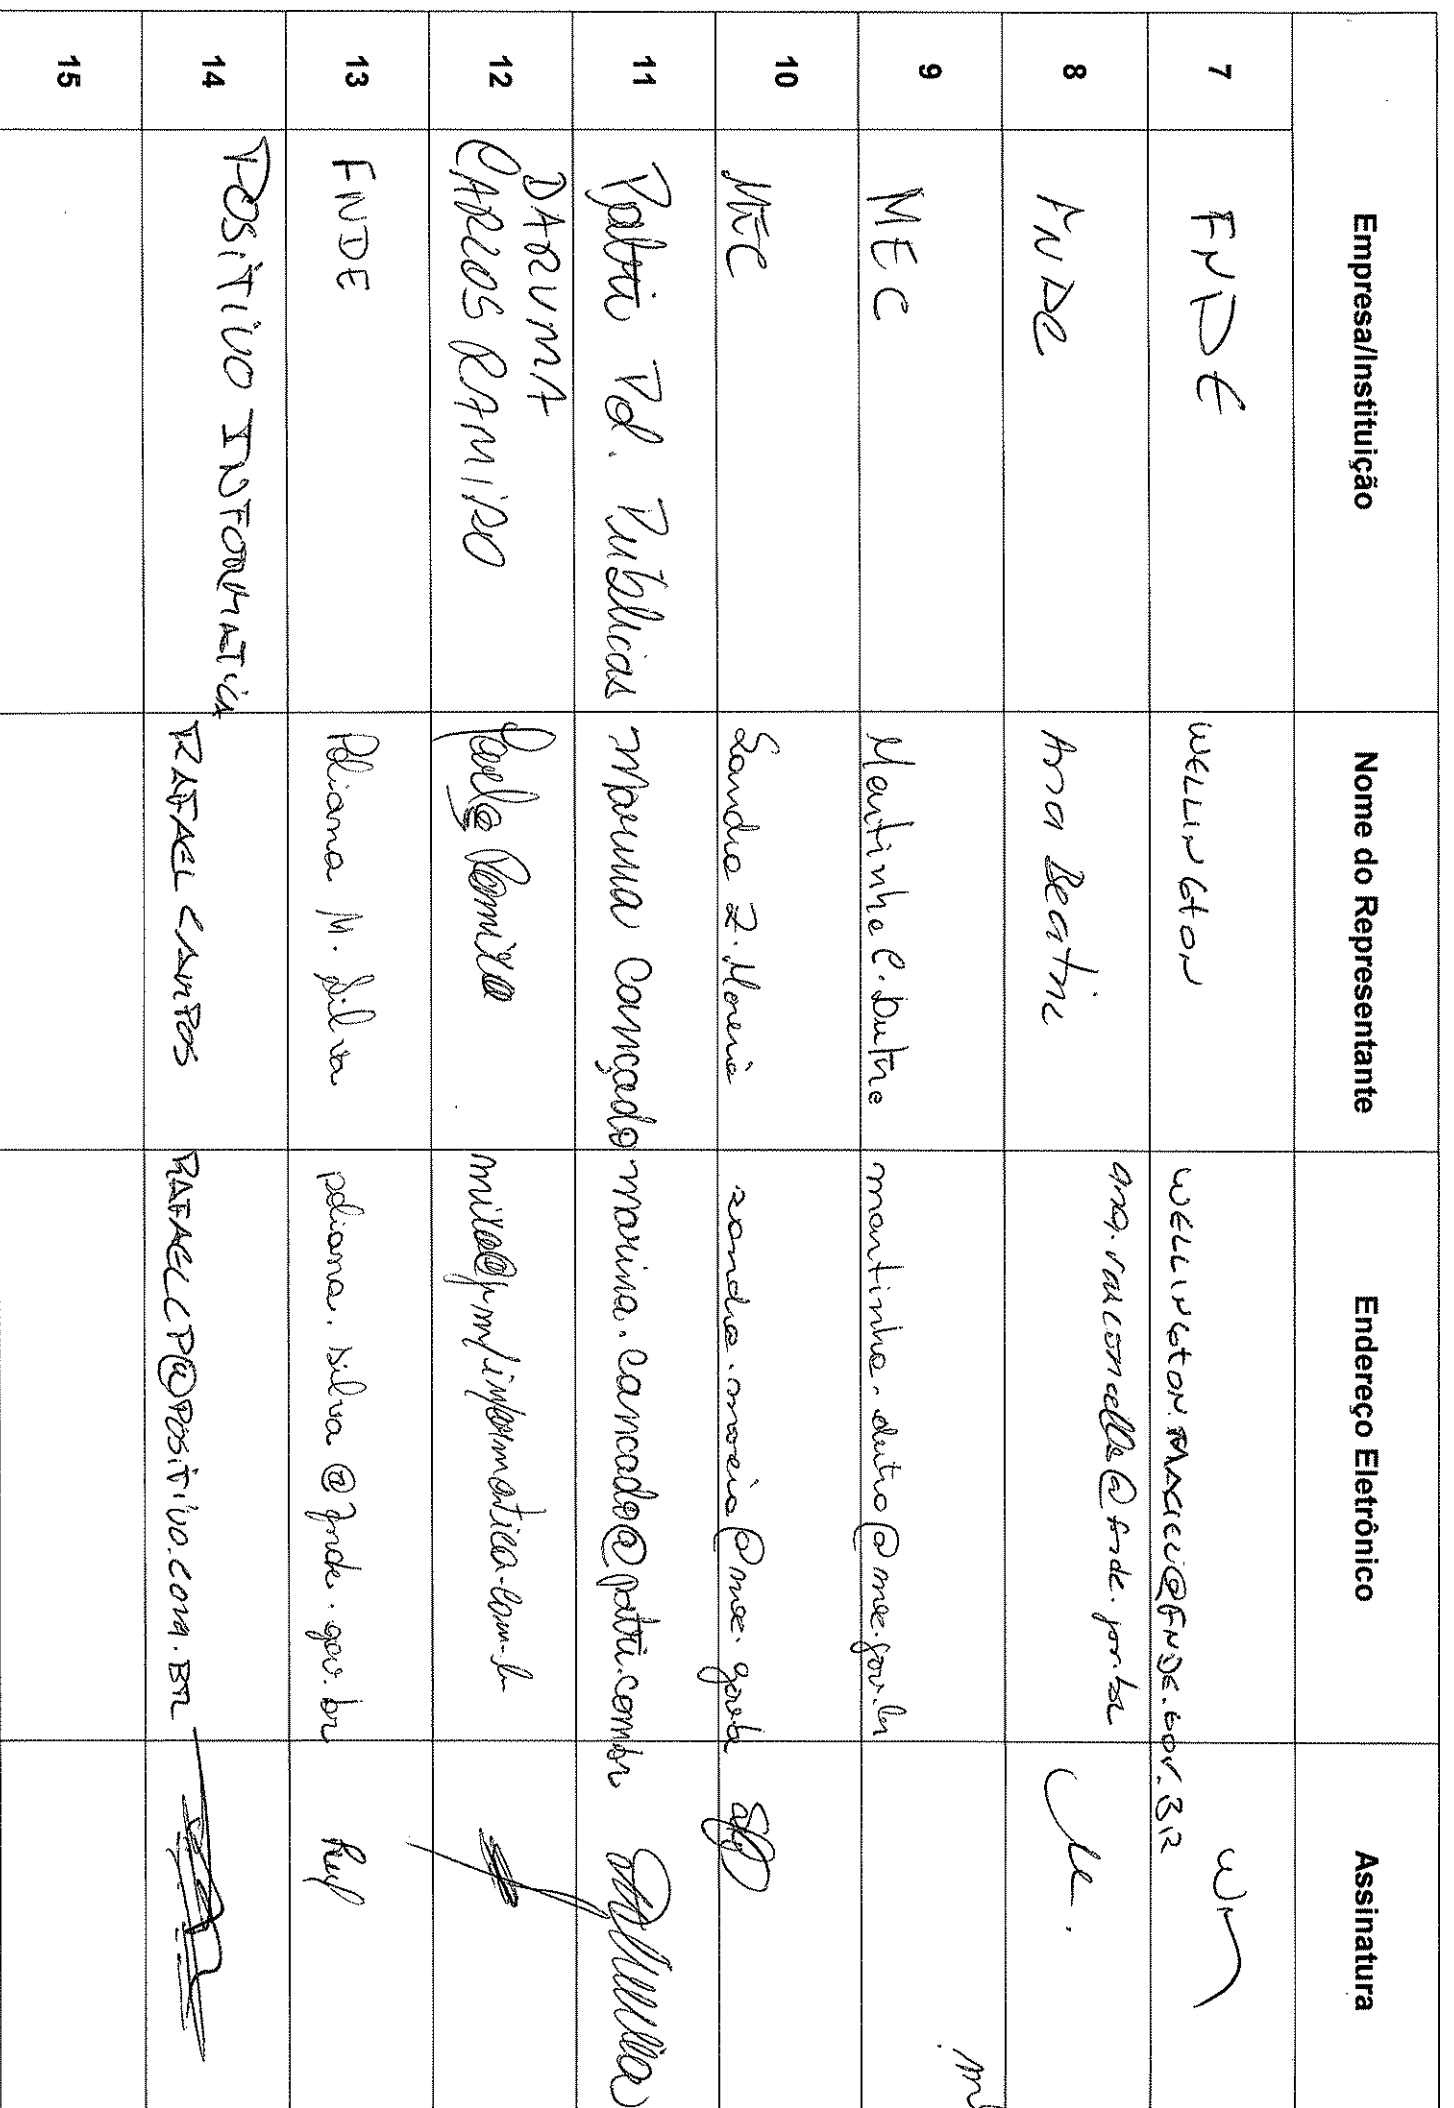 Empresa/Instituição Nome do Representante Endereço Eletrônico Assinatura
7 FNDE WELLINGTON WELLINGTON.MACIEL@FNDE.GOV.BR
8 FNDE Ana Beatriz ana.vasconcellos@fnde.gov.br
9 MEC Martinha C. Dutra martinha.dutra@mec.gov.br
10 MEC Sandra Z. Moreira sandra.moreira@mec.gov.br
11 Patri Pol. Publicas Marina Cançado marina.cancado@patri.com.br
12 DARUMA
CARLOS RAMIRO
13 FNDE Poliana M. Silva poliana.silva@fnde.gov.br
14 POSITIVO INFORMATICA RAFAEL CAMPOS RAFAELCP@POSITIVO.COM.BR
15